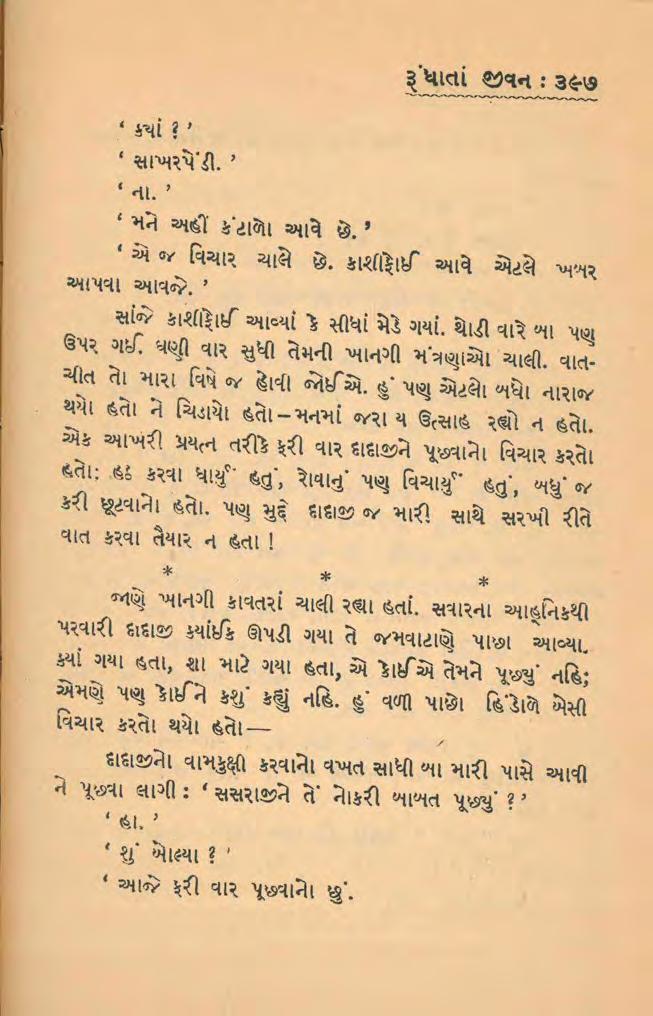 રૂંધાતાં જીવન : ૩૯૭
‘ ક્યાં ? ’
‘ સાખરપેંડી. ’
‘ ના. ’
‘ મને અહીં કંટાળો આવે છે. ’
‘ એ જ વિચાર ચાલે છે. કાશીફોઈ આવે એટલે ખબર
આપવા આવજે. ’
સાંજે કાશીફોઈ આવ્યાં કે સીધાં મેડે ગયાં. થોડી વારે બા પણ
ઉપર ગઈ. ઘણી વાર સુધી તેમની ખાનગી મંત્રણાઓ ચાલી. વાત-
ચીત તો મારા વિષે જ હોવી જોઈએ. હું પણ એટલો બધો નારાજ
થયો હતો ને ચિડાયો હતો – મનમાં જરા ય ઉત્સાહ રહ્યો ન હતો.
એક આખરી પ્રયત્ન તરીકે ફરી વાર દાદાજીને પૂછવાનો વિચાર કરતો
હતો: હઠ કરવા ધાર્યું હતું, રોવાનું પણ વિચાર્યું હતું, બધું જ
કરી છૂટવાનો હતો. પણ મુદ્દે દાદાજી જ મારી સાથે સરખી રીતે
વાત કરવા તૈયાર ન હતા !
* * *
જાણે ખાનગી કાવતરાં ચાલી રહ્યા હતાં. સવારના આહ્‌નિકથી
પરવારી દાદાજી ક્યાંઈક ઊપડી ગયા તે જમવાટાણે પાછા આવ્યા.
ક્યાં ગયા હતા, શા માટે ગયા હતા, એ કોઈએ તેમને પૂછ્યું નહિ;
એમણે પણ કોઈને કશું કહ્યું નહિ. હું વળી પાછો હિંડોળે બેસી
વિચાર કરતો થયો હતો—
દાદાજીનો વામકુક્ષી કરવાનો વખત સાધી બા મારી પાસે આવી
ને પૂછવા લાગી : ‘ સસરાજીને તેં નોકરી બાબત પૂછ્યું ? ’
‘ હા. ’
‘ શું બોલ્યા ? ’
‘ આજે ફરી વાર પૂછવાનો છું.